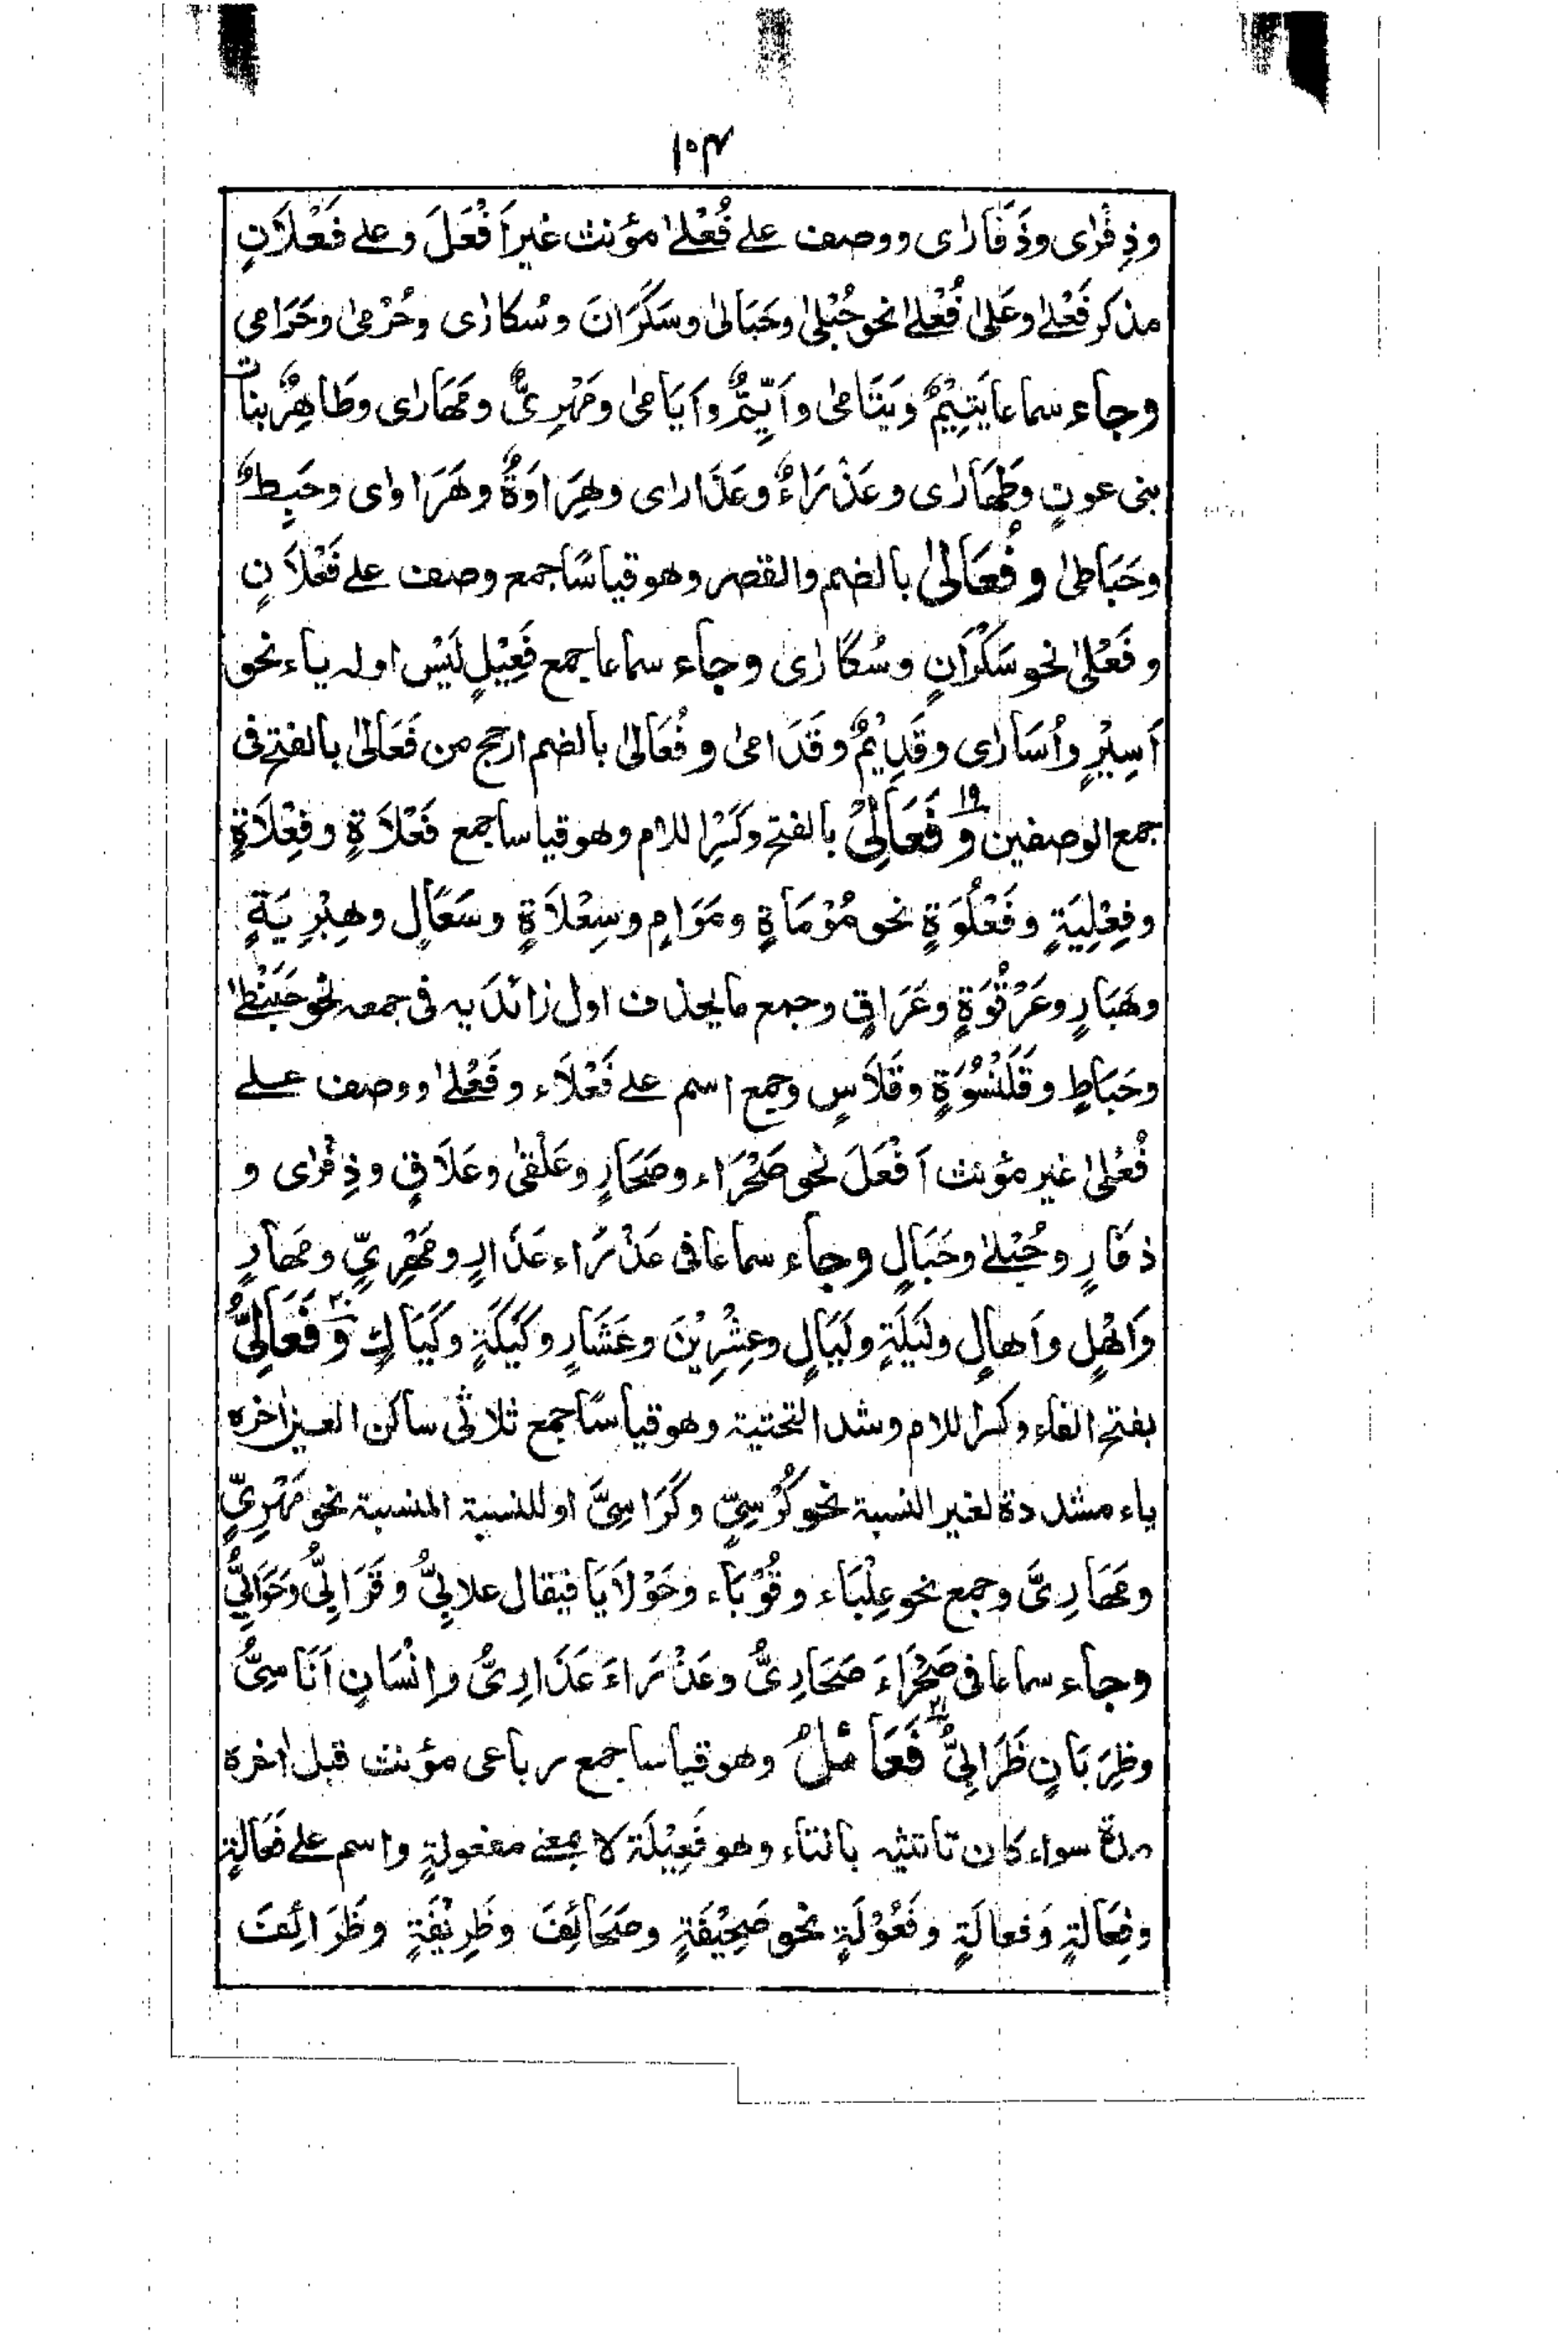 ١٠٤
وذِفْرٰى وذَفَارٰى ووصف على فُعْلىٰ مؤنث غير اَفْعَلَ وعلى فَعْلَانٍ
مذكر فَعْلىٰ وعَلىٰ فُعْلىٰ نحو حُبْلىٰ وحَبَالىٰ وسَكْرَانَ وسُكارٰى وحُرْمىٰ وحَرَامى
وجاء سماعا يَتِيْمٌ ويَتَامىٰ واَيِّمٌ واَيَامىٰ ومَهْرِىٌّ ومَهَارٰى وطَاهِرٌ بنات
بنى عونٍ وطَهَارٰى وعَذْرَاءٌ وعَذَارٰى وهِرَاوَةٌ وهَرَاوٰى وحَبِطٌ
وحَبَاطىٰ وفُعَالىٰ بالضم والقصر وهو قياسًا جمع وصف على فَعْلَانٍ
وفَعْلىٰ نحو سَكْرَانٍ وسُكَارٰى وجاء سماعا جمع فَعِيْلٍ لَيْس اوله ياء نحو
اَسِيْرٍ واُسَارٰى وقَدِيْمٌ وقَدَامىٰ وفُعَالىٰ بالضم ارجح من فَعَالىٰ بالفتح فى
جمع الوصفين ١٩ وفَعَالِىْ بالفتح وكَسْرِ اللام وهو قياسا جمع فَعْلَاةٍ وفِعْلَاةٍ
وفِعْلِيَةٍ وفَعْلُوَةٍ نحو مُوْمَاةٍ ومَوَامٍ وسِعْلَاةٍ وسَعَالٍ وهِبْرِيَةٍ
وهَبَارٍ وعَرْقُوَةٍ وعَرَاقٍ وجمع ما يحذف اول زائدَيه فى جمعه نحو حَبَنْطىٰ
وحَبَاطٍ وقَلَنْسُوَةٍ وقَلَاسٍ وجمع اسم على فَعْلَاء وفَعْلىٰ ووصف على
فُعْلىٰ غير مؤنث اَفْعَلَ نحو صَحْرَاء وصَحَارٍ وعَلْقىٰ وعَلَاقٍ وذِفْرٰى و
ذفَارٍ وحُبْلىٰ وحَبَالٍ وجاء سماعا فى عَذْرَاء عَذَارٍ ومَهْرِىٍّ ومَهارٍ
وَاَهْلٍ واَهالٍ ولَيْلَةٍ ولَيَالٍ وعِشْرِيْنَ وعَشَارٍ وكَيْكَةٍ وكَيَاكٍ ٢٠ وفَعَالِىُّ
بفتح الفاء وكسر اللام وشد التحتية وهو قياسًا جمع ثلاثى ساكن العين اٰخره
ياء مشددة لغير النسبة نحو كُرْسِىٍّ وكَرَاسِىَّ او للنسبة المنسية نحو مَهْرِىٍّ
ومَهَارِىَّ وجمع نحو عِلْبَاء وقُوْبَاء وحَوْلَايَا فيقال علابِىُّ وقَرَابِىُّ وحَوَالِىُّ
وجاء سماعا فى صَحْرَاءَ صَحَارِىُّ وعَذْرَاءَ عَذَارِىُّ واِنْسَانٍ اَنَاسِىُّ
وظِرَبَانٍ ظَرَابِىُّ ٢١ فَعَائلُ وهو قياسا جمع رباعى مؤنث قبل اٰخره
مدة سواء كان تانيثه بالتاء وهو فَعِيْلَة لا بمعنى مفعولةٍ واسم على فَعَالةٍ
وفِعَالةٍ وَفعالَةٍ وفَعُوْلَةٍ نحو صَحِيْفَةٍ وصَحَائِفَ وظَرِيْفَةٍ وظَرَائِفَ